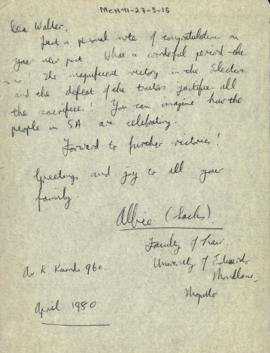 MCH91-27-5-15
Dear Walter,
Just a personal note of congratulations on
your new post. What a wonderful period this
is! The magnificent victory in the Election
and the defeat of the traitors justifies all
the sacrifice! You can imagine how the
people in SA are celebrating.
Forward to further victories!
Greetings and joy to all your
family
Albie (Sachs)
Faculty of Law
University of Eduardo
Mondlane,
Maputo
Av. K Kaunda 960
April 1980